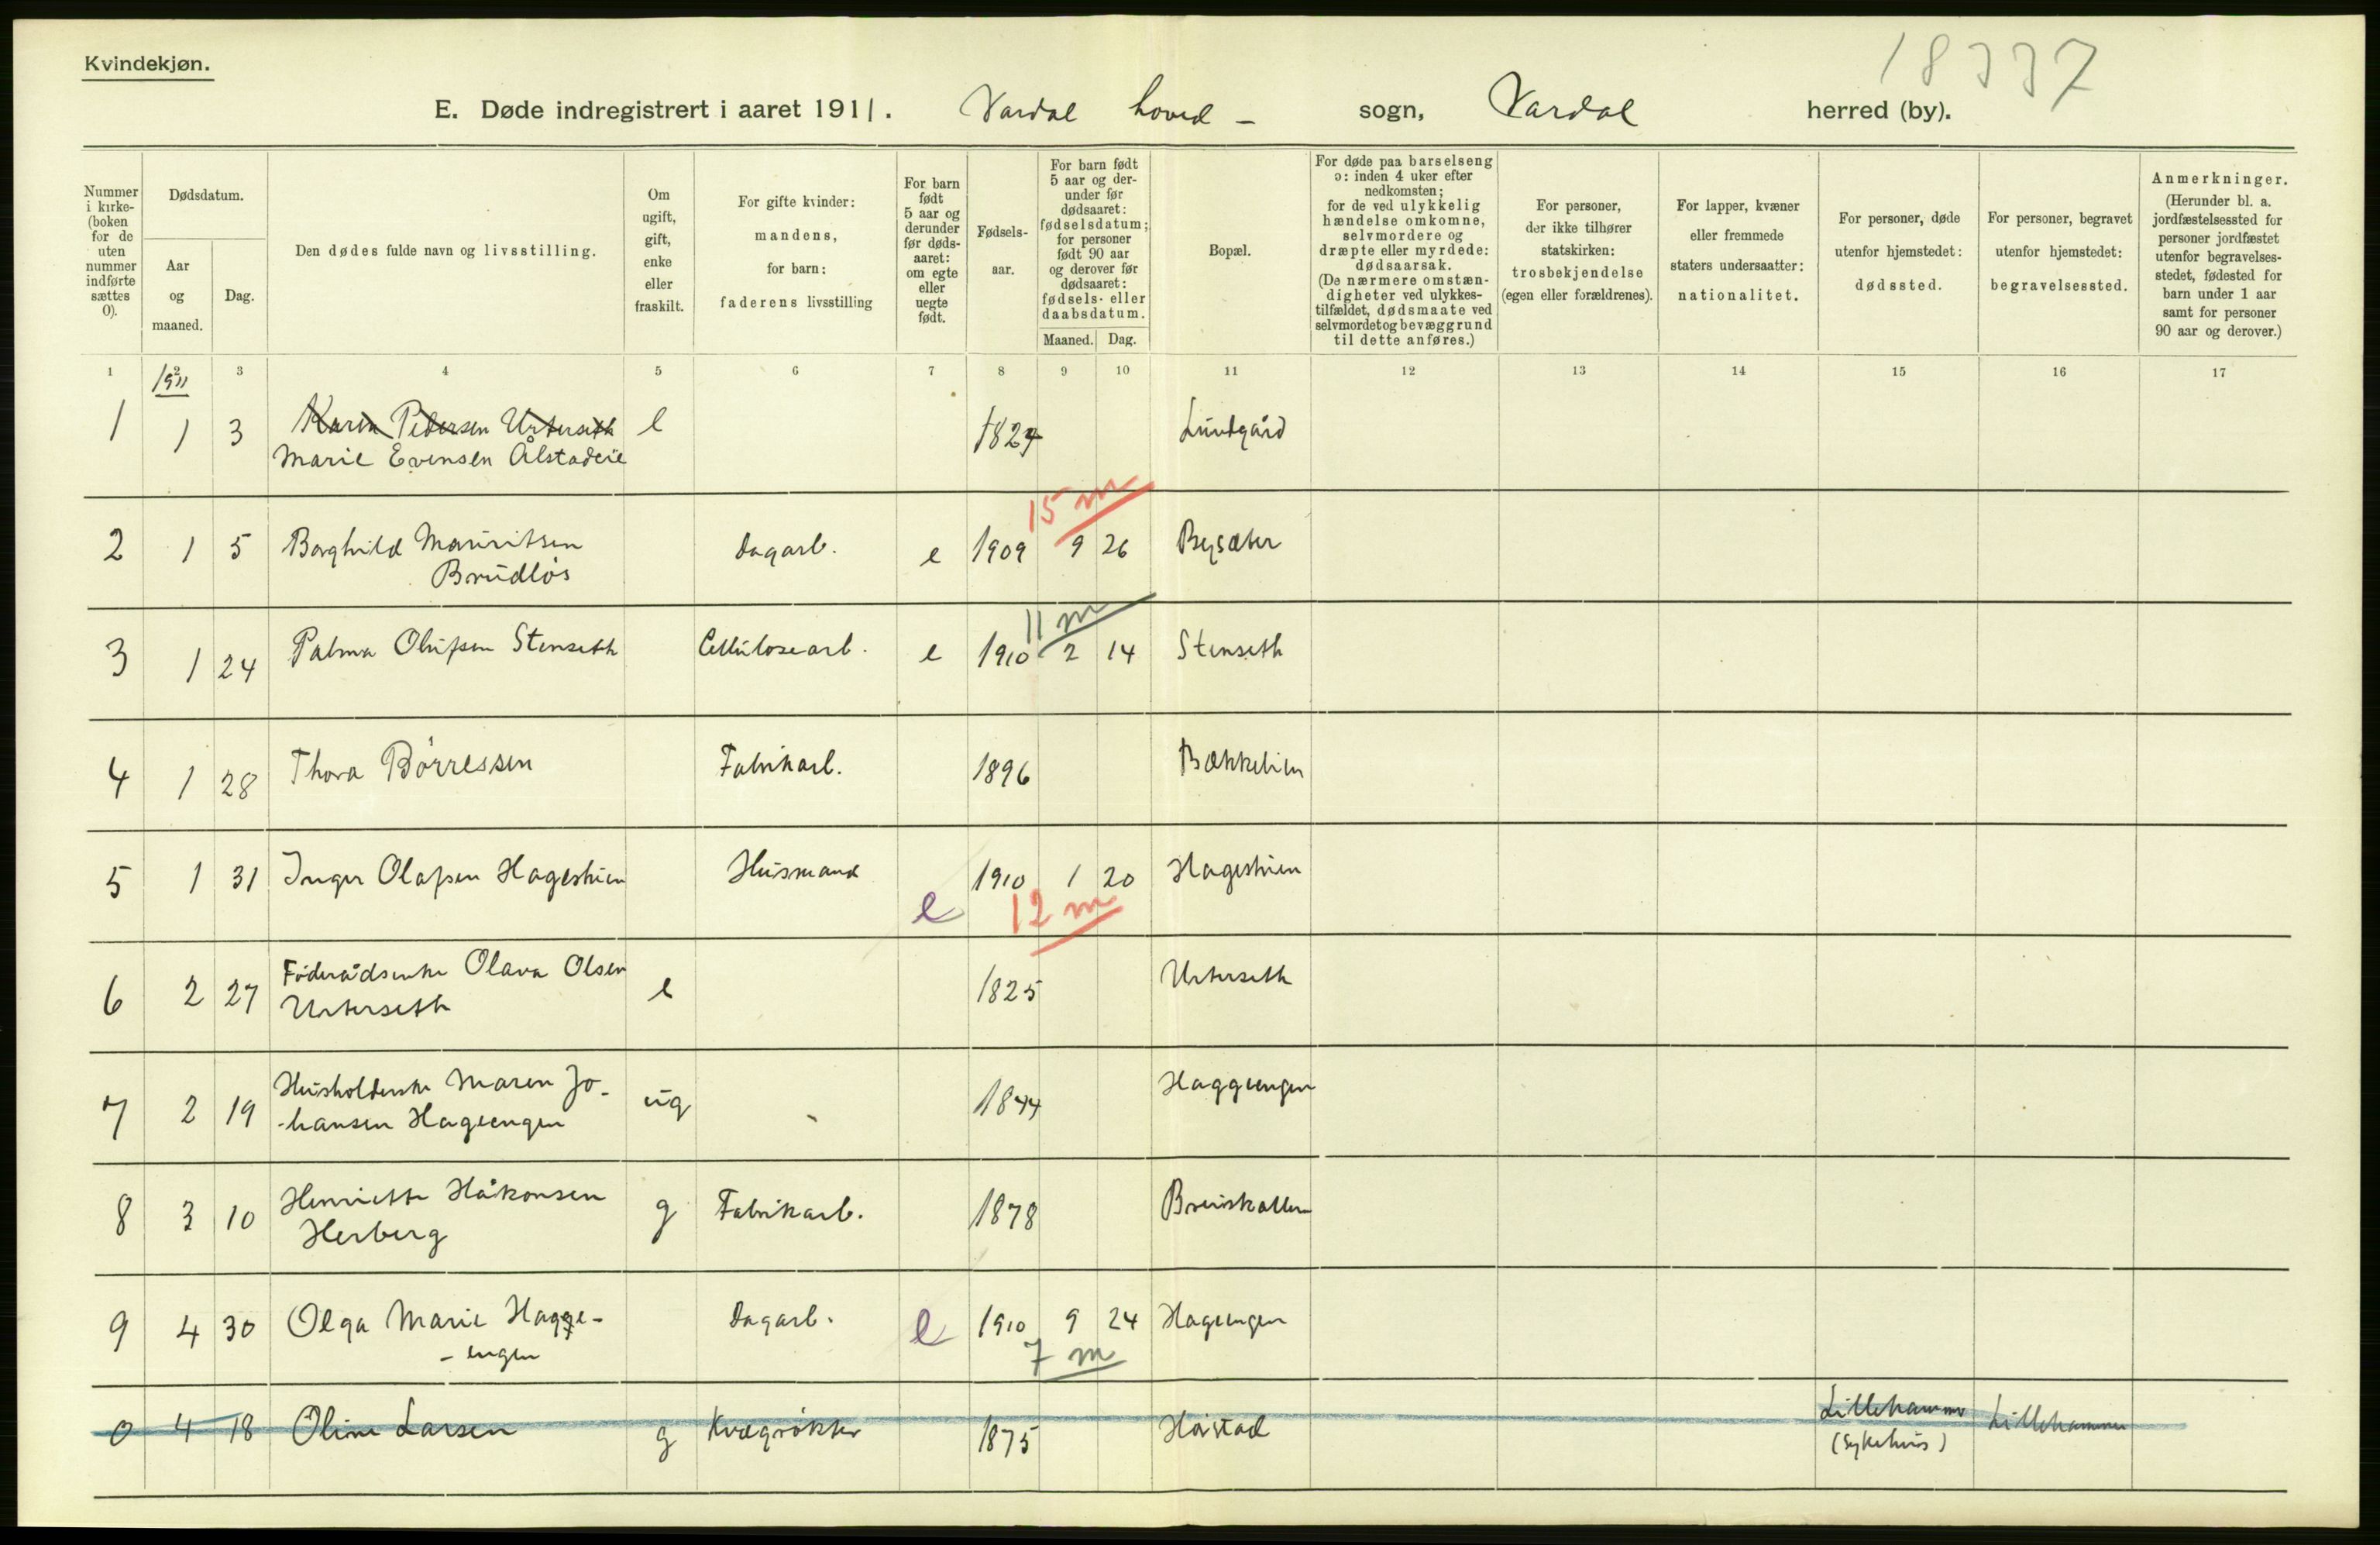 Kvindekjøn.
18337
E. Døde indregistrert i aaret 1911. Vardal hoved - sogn, Vardal herred (by).
Nummer i kirke- (boken for de uten nummer indførte sættes 0).
Dødsdatum.
Aar og maaned.
Dag.
Den dødes fulde navn og livsstilling.
Om ugift, gift, enke eller fraskilt.
For gifte kvinder: mandens, for barn: faderens livsstilling
For barn født 5 aar og derunder før døds- aaret: om egte eller uegte født.
Fødsels- aar.
For barn født 5 aar og der- under før dødsaaret: fødselsdatum; for personer født 90 aar og derover før dødsaaret: fødsels- eller daabsdatum.
Maaned. Dag.
Bopæl.
For døde paa barselseng ɔ: inden 4 uker efter nedkomsten; for de ved ulykkelig hændelse omkomne, selvmordere og dræpte eller myrdede: dødsaarsak. (De nærmere omstæn- digheter ved ulykkes- tilfældet, dødsmaate ved selvmordet og bevæggrund til dette anføres.)
For personer, der ikke tilhører statskirken: trosbekjendelse (egen eller forældrenes).
For lapper, kvæner eller fremmede staters undersaatter: nationalitet.
For personer, døde utenfor hjemstedet: dødssted.
For personer, begravet utenfor hjemstedet: begravelsessted.
Anmerkninger. (Herunder bl. a. jordfæstelsessted for personer jordfæstet utenfor begravelses- stedet, fødested for barn under 1 aar samt for personer 90 aar og derover.)
1 2 3 4 5 6 7 8 9 10 11 12 13 14 15 16 17
1911
1 1 3 Karin Pedersen Urterseth e 1824 Lundgård
Marie Evensen Ålstadeie
15 m
2 1 5 Borghild Mauritsen Dagarb. e 1909 9 26 Bysæter
Brudløs
11 m
3 1 24 Palma Olufsen Stenseth Cellulosearb. e 1910 2 14 Stenseth
4 1 28 Thora Börressen Fabrikarb. 1896 Bækkelien
5 1 31 Inger Olafsen Hageshien Husmand e 1910 1 20 Hageshien
12 m
6 2 27 Föderådsenke Olava Olsen e 1825 Urterseth
Urterseth
7 2 19 Husholderske Maren Jo- ug 1844 Haggeengen
-hansen Hageengen
8 3 10 Henriette Håkonsen g Fabrikarb. 1878 Bruiskallen
Herberg
9 4 30 Olga Marie Hagge- Dagarb. e 1910 9 24 Hageengen
- engen
7 m
0 4 18 Oline Larsen g Kvægrökter 1875 Höistad Lillehammer Lillehammer
(Sykehus)